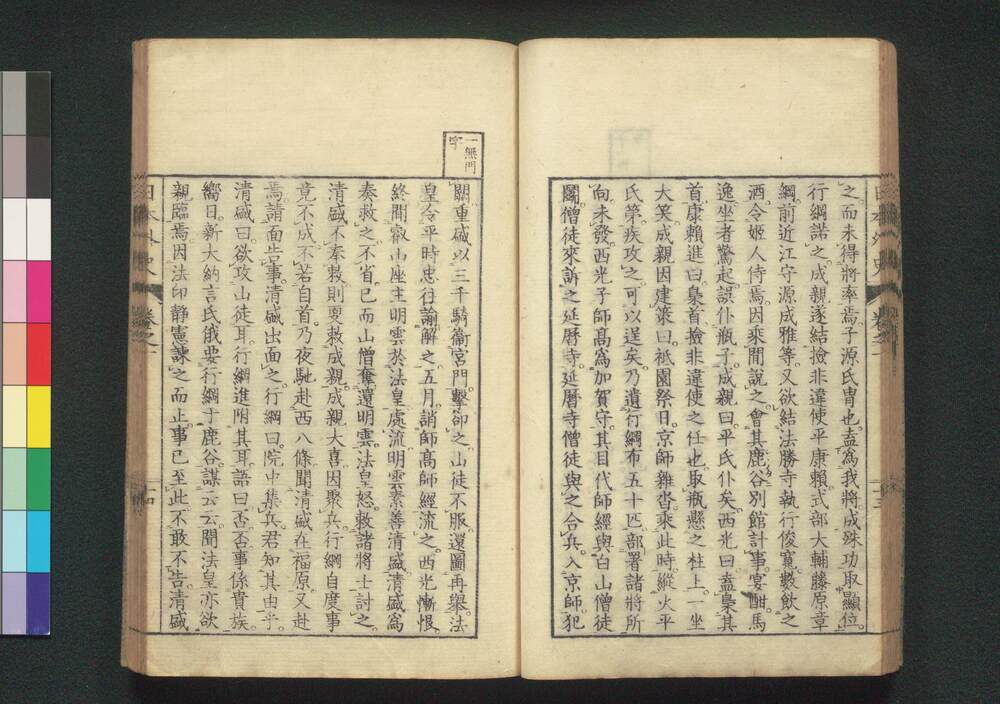 之而未得將率焉子源氏冑也盍為我將成殊功取顯位
行綱諾之成親遂結撿非違使平康賴式部大輔藤原章
綱前近江守源成雅等又欲結法勝寺執行俊寬數飲之
酒令姬人侍焉因乘間說之會其鹿谷別館計事宴酣馬
逸坐者驚起誤仆瓶子成親曰平氏仆矣西光曰盍梟其
首康賴進曰梟首撿非違使之任也取瓶懸之柱上一坐
大笑成親因建策曰祇園祭日京師雜沓乘此時縱火平
氏第疾攻之可以逞矣乃遺行綱布五十匹部署諸將所
向未發西光子師高為加賀守其目代師經與白山僧徒
鬩僧徒來訴之延曆寺延曆寺僧徒與之合兵入京師犯
日本外史 卷之一 十三
一無門字
闕重盛以三千騎衞宮門擊卻之山徒不服還圖再舉法
皇令平時忠往諭解之五月誚師高師經流之西光慚恨
終間叡山座主明雲於法皇處流明雲素善清盛清盛為
奏救之不省已而山僧奪還明雲法皇怒敕諸將士討之
清盛不奉敕則更敕成親成親大喜因聚兵行綱自度事
竟不成不若自首乃夜馳赴西八條聞清盛在福原又赴
焉請面告事清盛出面之行綱曰院中集兵君知其由乎
清盛曰欲攻山徒耳行綱進附其耳語曰否否事係貴族
嚮日新大納言氏俄要行綱于鹿谷謀云云聞法皇亦欲
親臨焉因法印靜憲諫之而止事已至此不敢不告清盛
日本外史 卷之一 十四